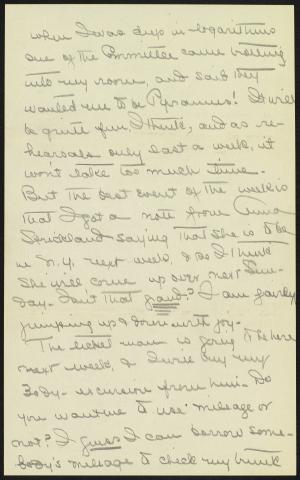 when I was deep in logarithms
one of the Committee came bursting
into my room, and said they
wanted me to be Pyramus! It will
be quite fun, I think, and as re-
hearsals only last a week, it
wont take too much time.
But the best event of the week is
that I got a note from Anna
Strickland saying that she is to be
in N.Y. next week, & so I think
she will come up over next Sun-
day. Isnt that grand? I am fairly
jumping up & down with joy.
The ticket man is going to be here
next week, & I will buy my
body-excursion from him. Do
you want me to use mileage or
not? I guess I can borrow some-
body's mileage to check my trunk